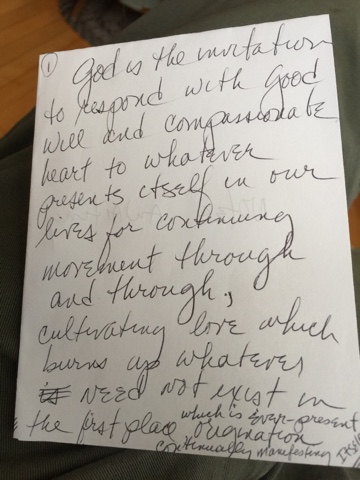 ① God is the invitation
to respond with good
will and compassionate
heart to whatever
presents itself in our
lives for continuing
movement through
and through.,
cultivating love which
burns up whatever
is need not exist in
the first place which is ever-present
origination
continually manifesting